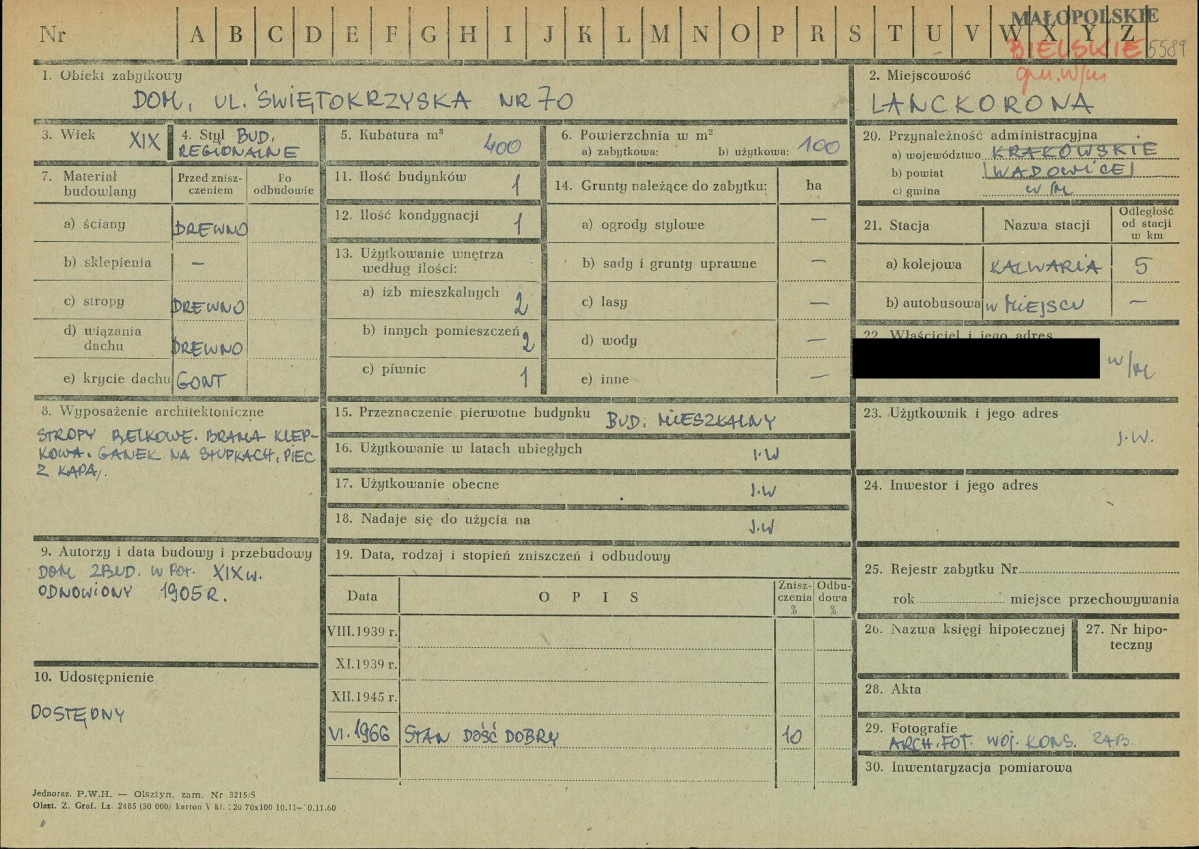 Nr A B C D E F G H I J K L M N O P R S T U V W X Y Z
MAŁOPOLSKIE
BIELSKIE 5589
gm. w/m
1. Obiekt zabytkowy
DOM, UL. ŚWIĘTOKRZYSKA NR 70
2. Miejscowość
LANCKORONA
3. Wiek XIX
4. Styl BUD.
REGIONALNE
5. Kubatura m³
400
6. Powierzchnia w m²
a) zabytkowa: b) użytkowa: 100
20. Przynależność administracyjna
a) województwo KRAKOWSKIE
b) powiat WADOWICE
c) gmina w/m
7. Materiał budowlany
Przed zniszczeniem
Po odbudowie
a) ściany DREWNO
b) sklepienia —
c) stropy DREWNO
d) wiązania dachu DREWNO
e) krycie dachu GONT
11. Ilość budynków 1
12. Ilość kondygnacji 1
13. Użytkowanie wnętrza
według ilości:
a) izb mieszkalnych 2
b) innych pomieszczeń 2
c) piwnic 1
14. Grunty należące do zabytku: ha
a) ogrody stylowe —
b) sady i grunty uprawne —
c) lasy —
d) wody —
e) inne —
21. Stacja
Nazwa stacji
Odległość
od stacji
w km
a) kolejowa KALWARIA 5
b) autobusowa W MIEJSCU —
22. Właściciel i jego adres
w/m
8. Wyposażenie architektoniczne
STROPY BELKOWE. BRAMA KLEP-
KOWA. GANEK NA SŁUPKACH, PIEC
Z KAPĄ.
15. Przeznaczenie pierwotne budynku BUD. MIESZKALNY
16. Użytkowanie w latach ubiegłych J.W
17. Użytkowanie obecne J.W
18. Nadaje się do użycia na J.W
23. Użytkownik i jego adres
J.W.
24. Inwestor i jego adres
9. Autorzy i data budowy i przebudowy
DOM ZBUD. W POŁ. XIX w.
ODNOWIONY 1905 R.
19. Data, rodzaj i stopień zniszczeń i odbudowy
Data
O P I S
Znisz-
czenia
%
Odbu-
dowa
%
VIII.1939 r.
XI.1939 r.
XII.1945 r.
VI.1966 STAN DOŚĆ DOBRY 10
25. Rejestr zabytku Nr
rok miejsce przechowywania
26. Nazwa księgi hipotecznej
27. Nr hipo-
teczny
28. Akta
29. Fotografie
ARCH. FOT. WOJ. KONS. ZAB.
30. Inwentaryzacja pomiarowa
10. Udostępnienie
DOSTĘPNY
Jednoraz. P.W.H. — Olsztyn, zam. Nr 3215/S
Olszt. Z. Graf. Lz. 2485 (30 000) karton V kl.